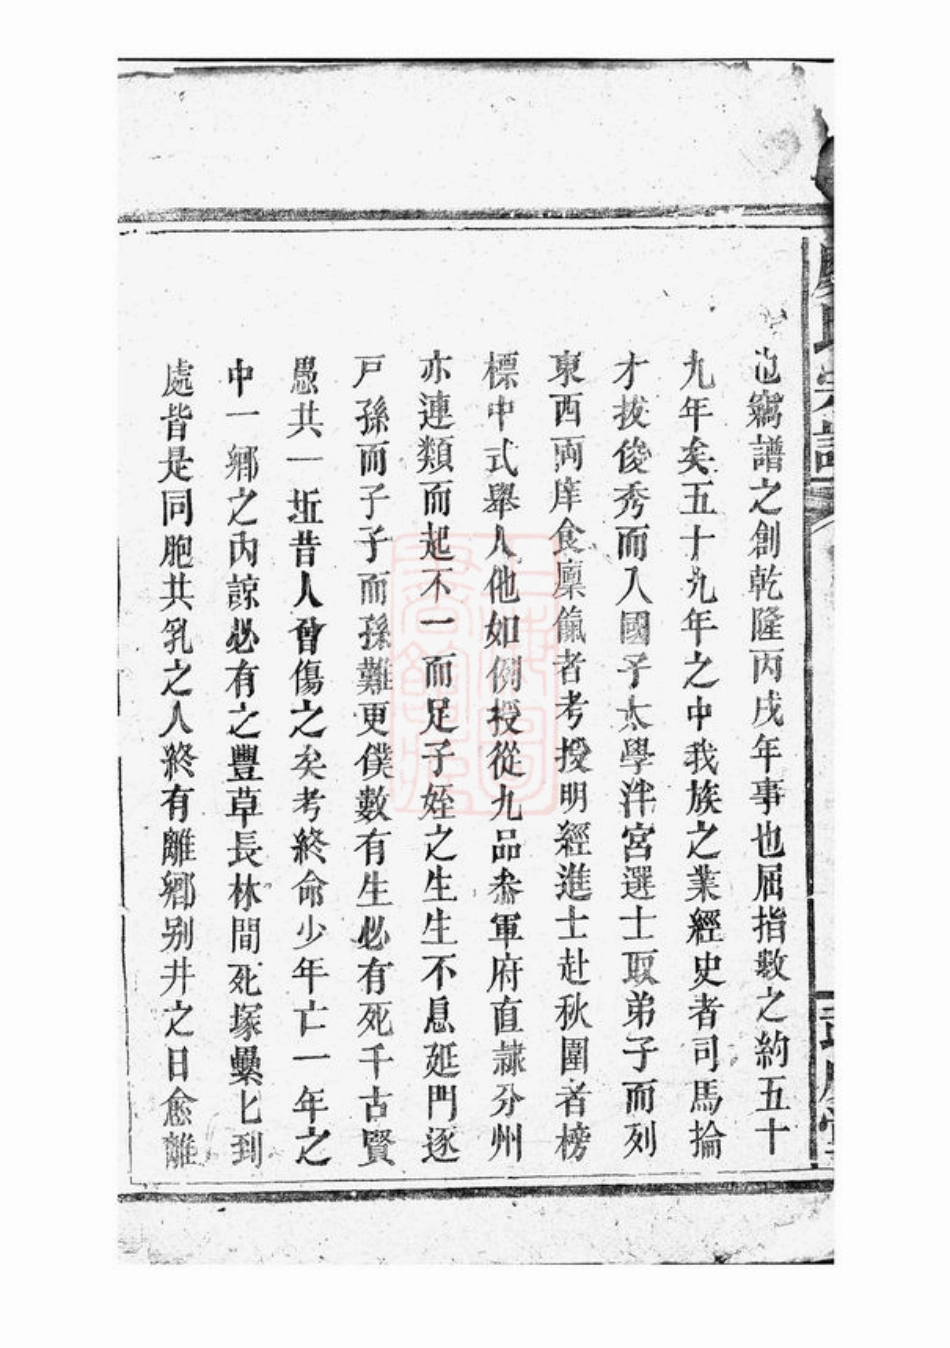 也竊譜之創乾隆丙戌年事也屈指數之約五十
九年矣五十九年之中我族之業經史者司馬掄
才拔俊秀而入國子太學泮宮選士取弟子而列
東西両庠食廩餼者考授明經進士赴秋圍者榜
標中式舉人他如例授從九品叅軍府直隷分州
亦連類而起不一而足子姪之生生不息延門逐
戸孫而子子而孫難更僕數有生必有死千古賢
愚共一坵昔人曾傷之矣考終命少年亡一年之
中一鄉之内諒必有之豐草長林間死塚纍匕到
處皆是同胞共乳之人終有離鄉别井之日愈離
氏宗譜